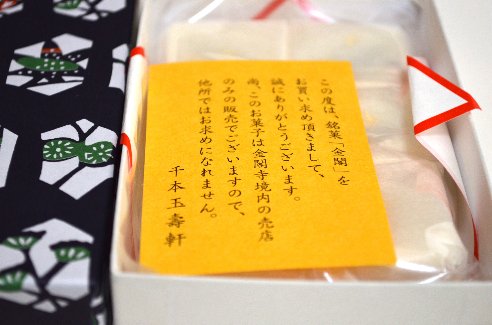 この度は、銘菓「金閣」を
お買い求め頂きまして、
誠にありがとうございます。
尚、このお菓子は金閣寺境内の売店
のみの販売でございますので、
他所ではお求めになれません。
千本玉壽軒